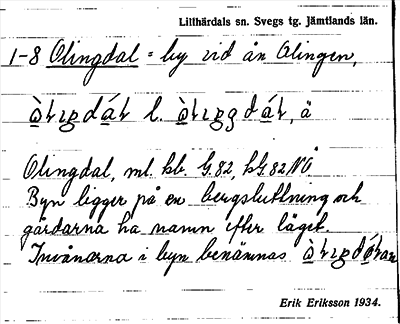 Lillhärdals sn. Svegs tg. Jämtlands län.
1-8 Olingdal = by vid ån Olingen,
l. , å
Olingdal, ml. kb. G.82, kG.82NO
Byn ligger på en bergsluttning och
gårdarna ha namn efter läget.
Invånarna i byn benämnas
Erik Eriksson 1934.